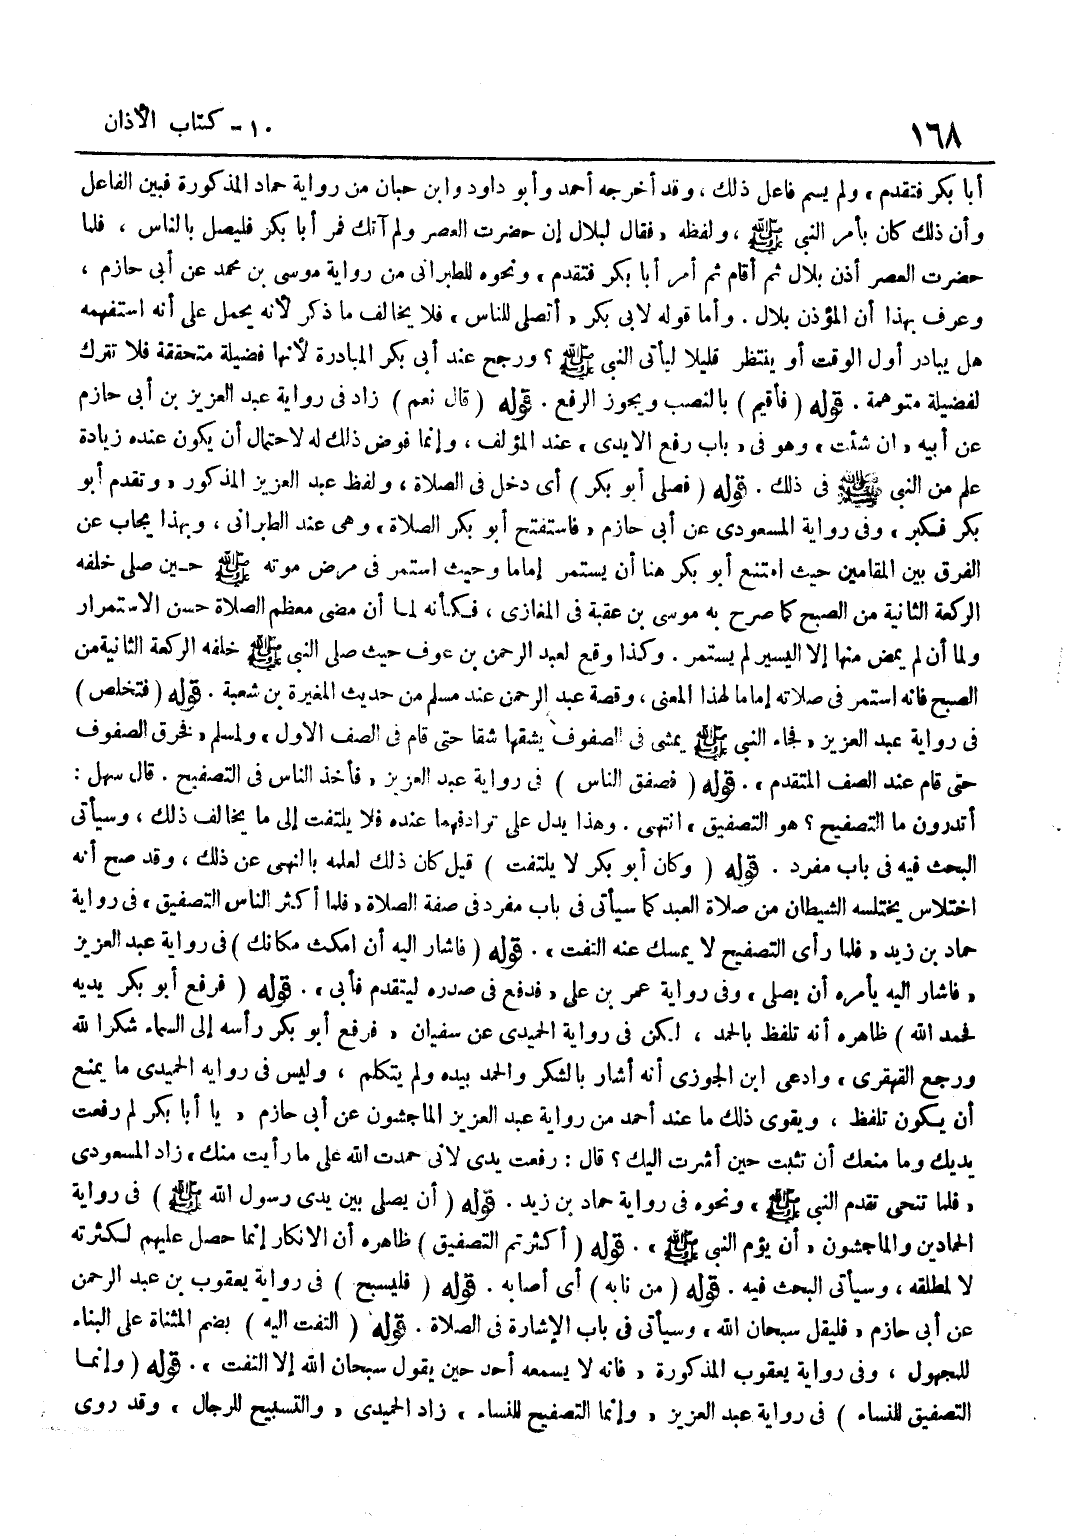 ١٦٨
١٠ - كتاب الأذان
أبا بكر فتقدم » ولم يسم فاعل ذلك ، وقد أخرجه أحمد وأبو داود وابن حبان من رواية حماد المذكورة فبين الفاعل
وأن ذلك كان بأمر النبي ﷺ ، ولفظه « فقال لبلال إن حضرت العصر ولم آتك فمر أبا بكر فليصل بالناس ، فلما
حضرت العصر أذن بلال ثم أقام ثم أمر أبا بكر فتقدم » ونحوه للطبرانى من رواية موسى بن محمد عن أبى حازم ،
وعرف بهذا أن المؤذن بلال . وأما قوله لابى بكر « أتصلى للناس » فلا يخالف ما ذكر لأنه يحمل على أنه استفهمه
هل يبادر أول الوقت أو ينتظر قليلا ليأتى النبى ﷺ ؟ ورجح عند أبى بكر المبادرة لأنها فضيلة متحققة فلا تترك
لفضيلة متوهمة . قوله ( فأقيم ) بالنصب ويجوز الرفع . قوله ( قال نعم ) زاد فى رواية عبد العزيز بن أبى حازم
عن أبيه « ان شئت » وهو فى « باب رفع الايدى » عند المؤلف ، وإنما فوض ذلك له لاحتمال أن يكون عنده زيادة
علم من النبى ﷺ فى ذلك . قوله ( فصلى أبو بكر ) أى دخل فى الصلاة ، ولفظ عبد العزيز المذكور « وتقدم أبو
بكر فكبر » وفى رواية المسعودى عن أبى حازم « فاستفتح أبو بكر الصلاة » وهى عند الطبرانى ، وبهذا يجاب عن
الفرق بين المقامين حيث امتنع أبو بكر هنا أن يستمر إماما وحيث استمر فى مرض موته ﷺ حين صلى خلفه
الركعة الثانية من الصبح كما صرح به موسى بن عقبة فى المغازى ، فكأنه لما أن مضى معظم الصلاة حسن الاستمرار
ولما أن لم يمض منها إلا اليسير لم يستمر . وكذا وقع لعبد الرحمن بن عوف حيث صلى النبى ﷺ خلفه الركعة الثانية من
الصبح فانه استمر فى صلاته إماما لهذا المعنى ، وقصة عبد الرحمن عند مسلم من حديث المغيرة بن شعبة . قوله ( فتخلص )
فى رواية عبد العزيز « فجاء النبى ﷺ يمشى فى الصفوف يشقها شقا حتى قام فى الصف الاول » ولمسلم « فخرق الصفوف
حتى قام عند الصف المتقدم » . قوله ( فصفق الناس ) فى رواية عبد العزيز « فأخذ الناس فى التصفيح . قال سهل :
أتدرون ما التصفيح ؟ هو التصفيق » انتهى . وهذا يدل على ترادفهما عنده فلا يلتفت إلى ما يخالف ذلك ، وسيأتى
البحث فيه فى باب مفرد . قوله ( وكان أبو بكر لا يلتفت ) قيل كان ذلك لعلمه بالنهى عن ذلك ، وقد صح أنه
اختلاس يختلسه الشيطان من صلاة العبد كما سيأتى فى باب مفرد فى صفة الصلاة « فلما أكثر الناس التصفيق » فى رواية
حماد بن زيد « فلما رأى التصفيح لا يمسك عنه التفت » . قوله ( فاشار اليه أن امكث مكانك ) فى رواية عبد العزيز
« فاشار اليه يأمره أن يصلى » وفى رواية عمر بن على « فدفع فى صدره ليتقدم فأبى » . قوله ( فرفع أبو بكر يديه
فحمد الله ) ظاهره أنه تلفظ بالحمد ، لكن فى رواية الحميدى عن سفيان « فرفع أبو بكر رأسه إلى السماء شكرا لله
ورجع القهقرى » وادعى ابن الجوزى أنه أشار بالشكر والحمد بيده ولم يتكلم ، وليس فى رواية الحميدى ما يمنع
أن يكون تلفظ ، ويقوى ذلك ما عند أحمد من رواية عبد العزيز الماجشون عن أبى حازم « يا أبا بكر لم رفعت
يديك وما منعك أن تثبت حين أشرت اليك ؟ قال : رفعت يدى لانى حمدت الله على ما رأيت منك » زاد المسعودى
« فلما تنحى تقدم النبى ﷺ » ونحوه فى رواية حماد بن زيد . قوله ( أن يصلى بين يدى رسول الله ﷺ ) فى رواية
الحمادين والماجشون « أن يؤم النبى ﷺ » . قوله ( أكثرتم التصفيق ) ظاهره أن الانكار إنما حصل عليهم لكثرته
لا لمطلقه ، وسيأتى البحث فيه . قوله ( من نابه ) أى أصابه . قوله ( فليسبح ) فى رواية يعقوب بن عبد الرحمن
عن أبى حازم « فليقل سبحان الله » وسيأتى فى باب الإشارة فى الصلاة . قوله ( التفت اليه ) بضم المثناة على البناء
للمجهول ، وفى رواية يعقوب المذكورة « فانه لا يسمعه أحد حين يقول سبحان الله إلا التفت » . قوله ( وإنما
التصفيق للنساء ) فى رواية عبد العزيز « وإنما التصفيح للنساء » زاد الحميدى « والتسبيح للرجال » وقد روى